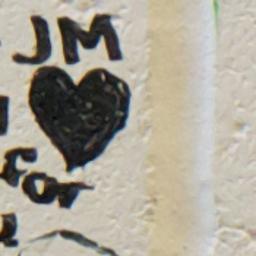 JM
for